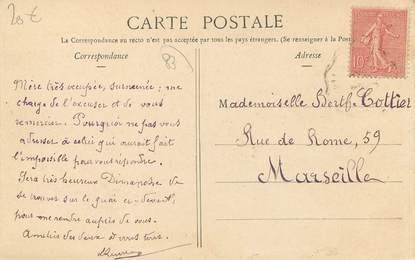 20€
CARTE POSTALE
La Correspondance au recto n'est pas acceptée par tous les pays étrangers. (Se renseigner à la Poste)
Correspondance
Adresse
83
10
Mère très occupée, surmenée ; me
charge de l'excuser et de vous
remercier. Pourquoi ne pas vous
adresser à celui qui aurait fait
l'impossible pour vous répondre.
Sera très heureux Dimanche de
se trouver sur le quai ci-devant,
pour me rendre auprès de vous.
Amitiés des
Mademoiselle Berthe Cottier
Rue de Rome, 59
Marseille